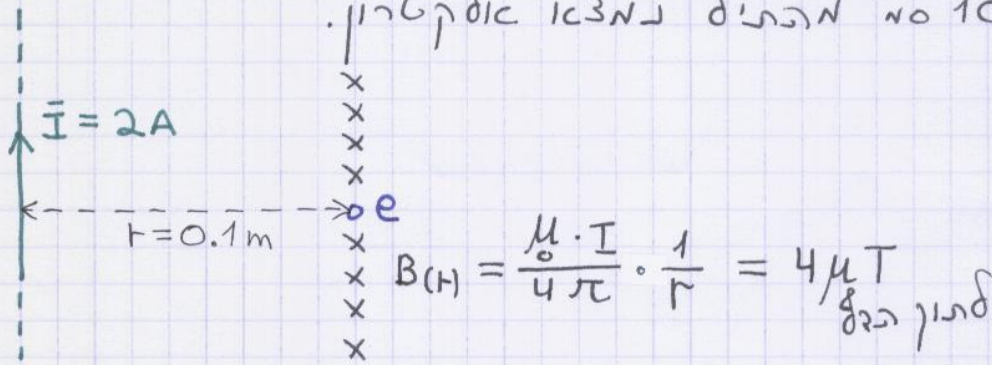 10 סמ מהתיל נמצא אלקטרון.
I = 2A
e
r = 0.1m
B(r) = μ₀·I / 4π · 1/r = 4μT
לתוך הדף